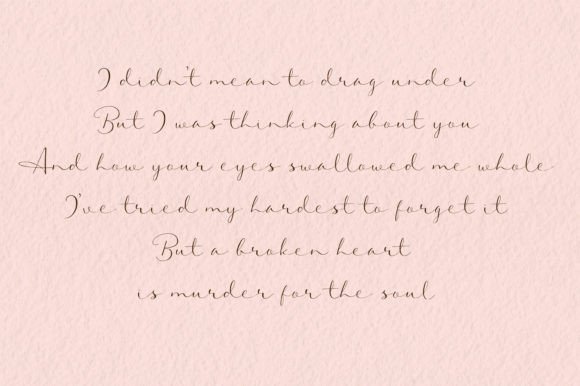 I didn't mean to drag under
But I was thinking about you
And how your eyes swallowed me whole
I've tried my hardest to forget it
But a broken heart
is murder for the soul